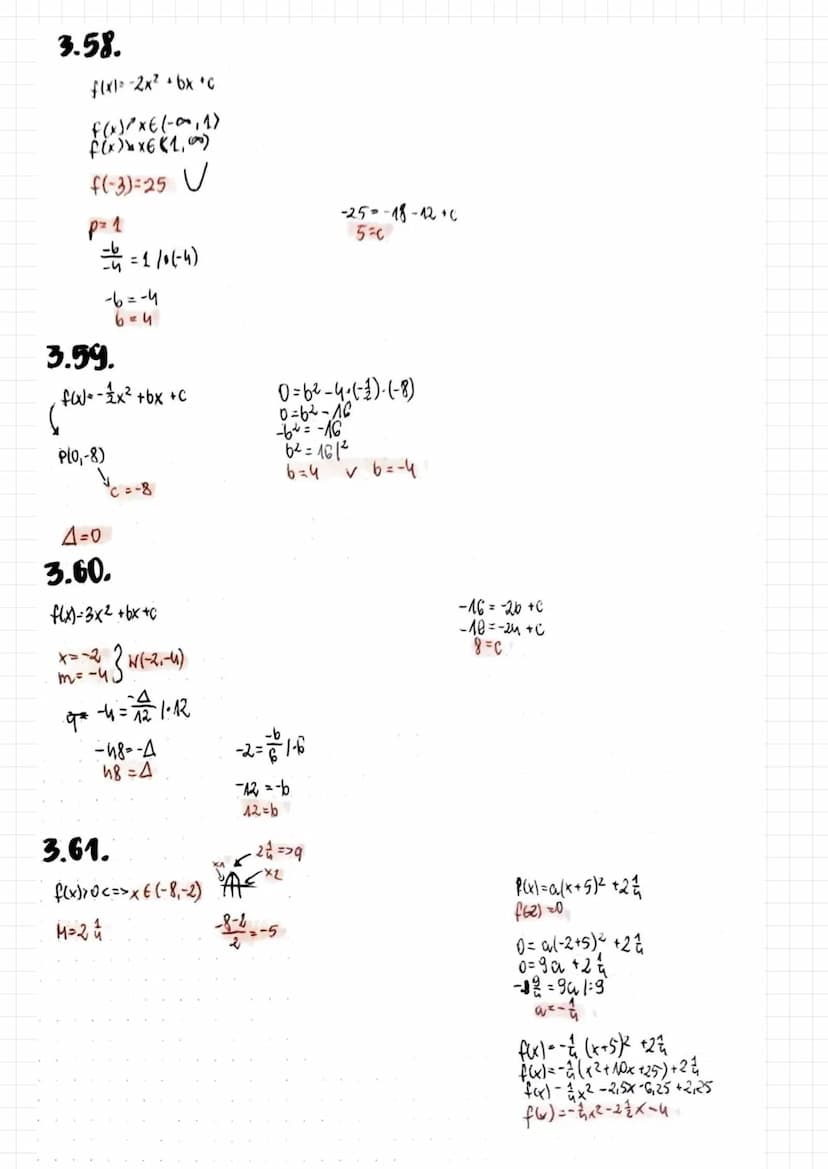 3.58.
f(x)=-2x² +bx +c
f(x)↗ x∈(-∞,1⟩
f(x)↘ x∈⟨1,∞)
f(-3)=25
p=1
-b/-4 = 1 /·(-4)
-b = -4
b = 4
-25 = -18 -12 +c
5=c
3.59.
f(x)=-1/2x² +bx +c
P(0,-8)
c = -8
Δ=0
0=b² -4·(-1/2)·(-8)
0=b² -16
-b² = -16
b² = 16 |²
b=4 v b=-4
3.60.
f(x)=3x² +bx+c
x=-2
m=-4 } W(-2,-4)
q= -4 = -Δ/12 |·12
-48=-Δ
48 = Δ
-2 = -b/6 |·6
-12 = -b
12=b
-16 = -2b +c
-18 = -24 +c
8=c
3.61.
f(x)>0 <=> x∈(-8,-2)
M=2 1/4
2 1/4 => q
x1
x2
-8-2/2 = -5
f(x)=a(x+5)² +2 1/4
f(-2)=0
0= a(-2+5)² +2 1/4
0=9a +2 1/4
-9/4 = 9a |:9
a=-1/4
f(x)=-1/4 (x+5)² +2 1/4
f(x)=-1/4(x²+10x+25)+2 1/4
f(x)-1/4x² -2,5x -6,25 +2,25
f(x)=-1/4x² -2 1/2x -4